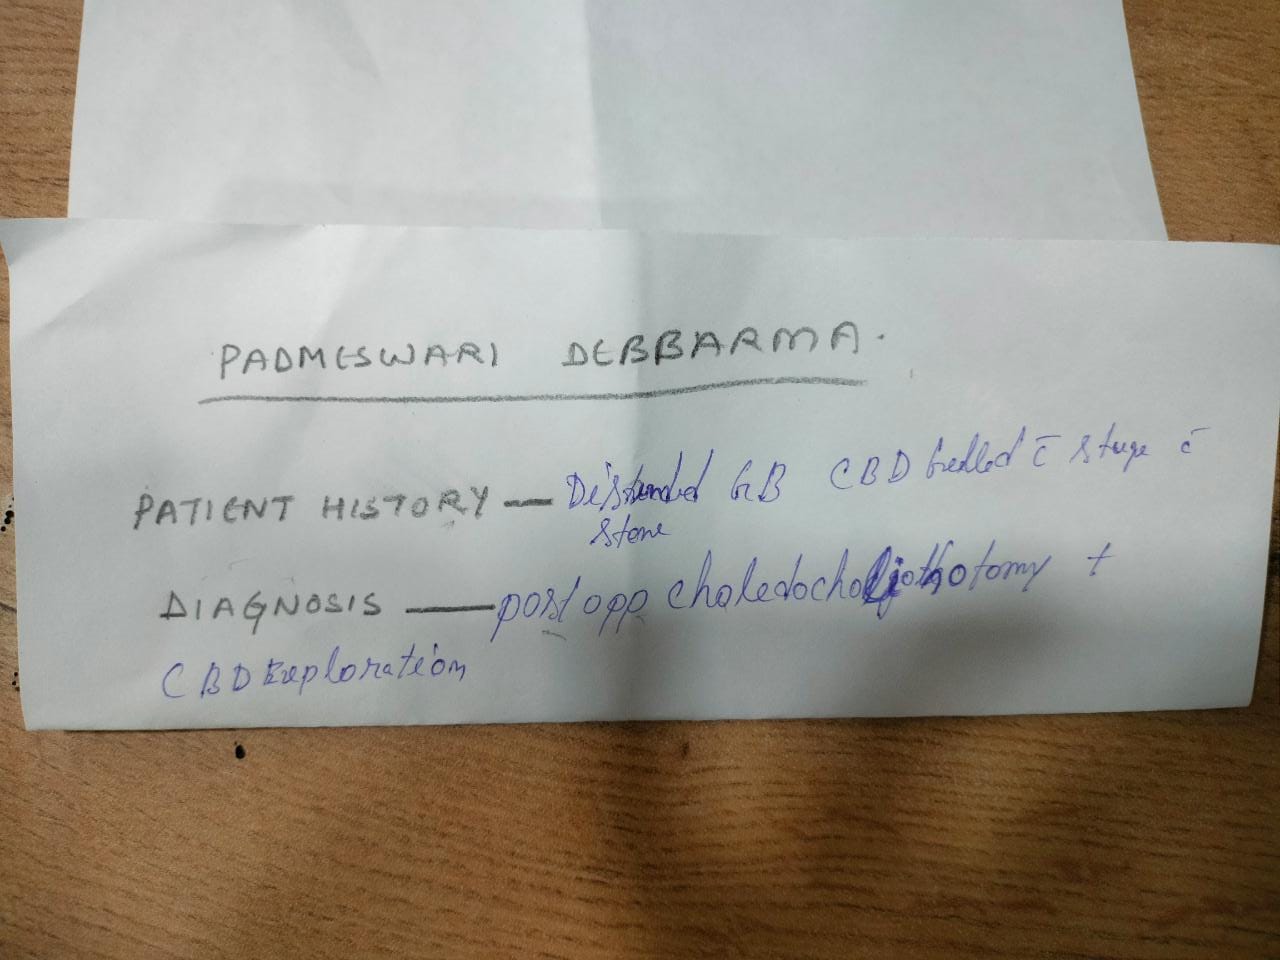 PADMESWARI DEBBARMA.
PATIENT HISTORY — Distended GB CBD c̄ c̄
stone
DIAGNOSIS — post opp choledocholiothotomy +
CBD Exploration